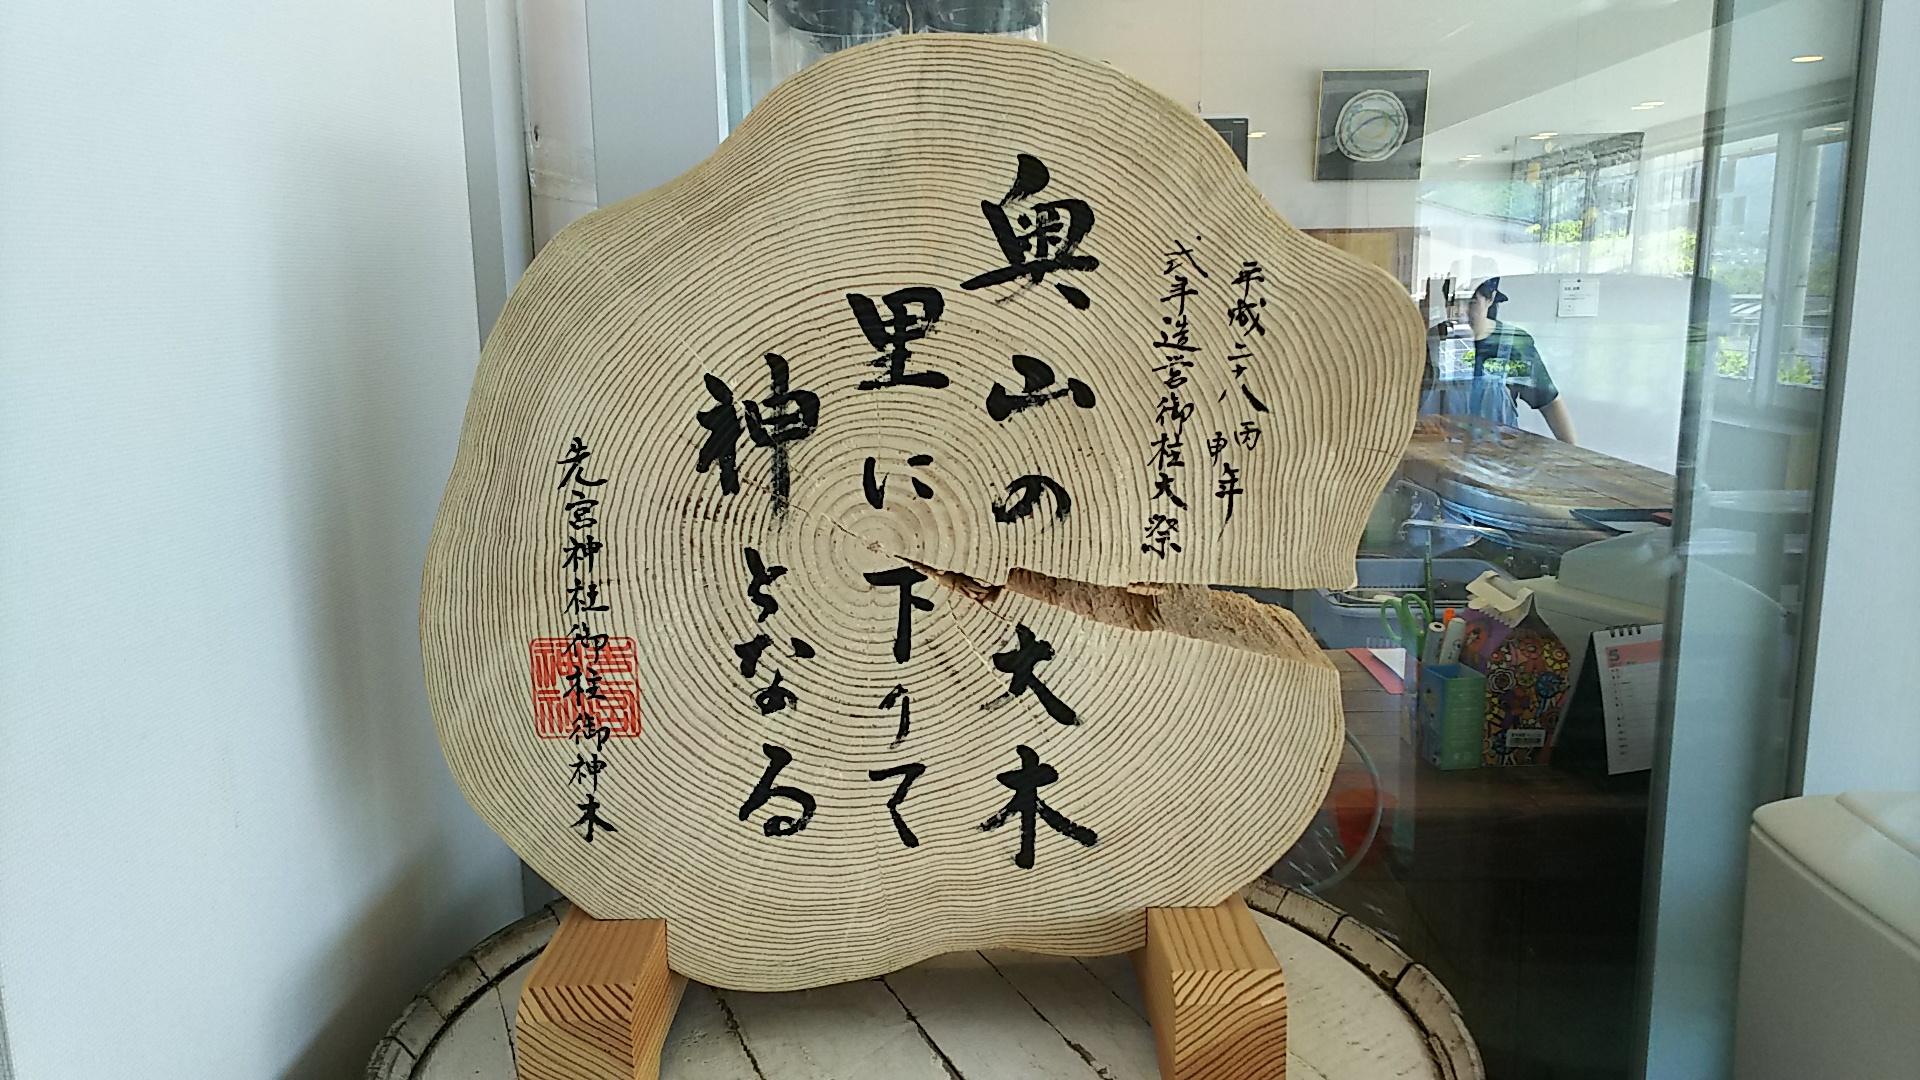 平成二十八丙申年
式年造営御柱大祭
奥山の大木
里に下りて
神となる
先宮神社御柱御神木
5